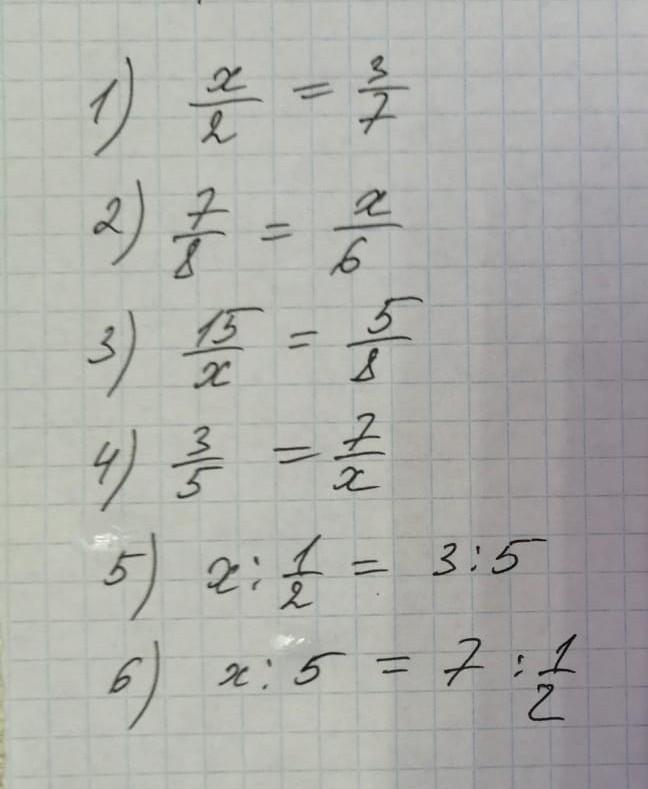 1) x/2 = 3/7
2) 7/8 = x/6
3) 15/x = 5/8
4) 3/5 = 7/x
5) x : 1/2 = 3 : 5
6) x : 5 = 7 : 1/2